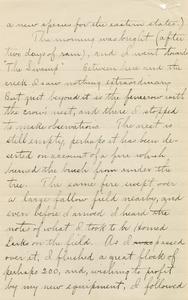 a new species for the eastern states.)
The morning was bright (after
two days of rain), and I went towards
"The Swamp." Between here and the
creek I saw nothing extraordinary.
But just beyond it is the fencerow with
the crow nest, and there I stopped
to make observations. The nest is
still empty, perhaps it has been de-
serted on account of a fire which
burned the brush from under the
tree. The same fire swept over
a large fallow field nearby, and
even before I arrived I heard the
note of what I took to be Horned
Larks on the field. As I passed
over it, I flushed a great flock of
perhaps 200, and, wishing to profit
by my new equipment, I followed